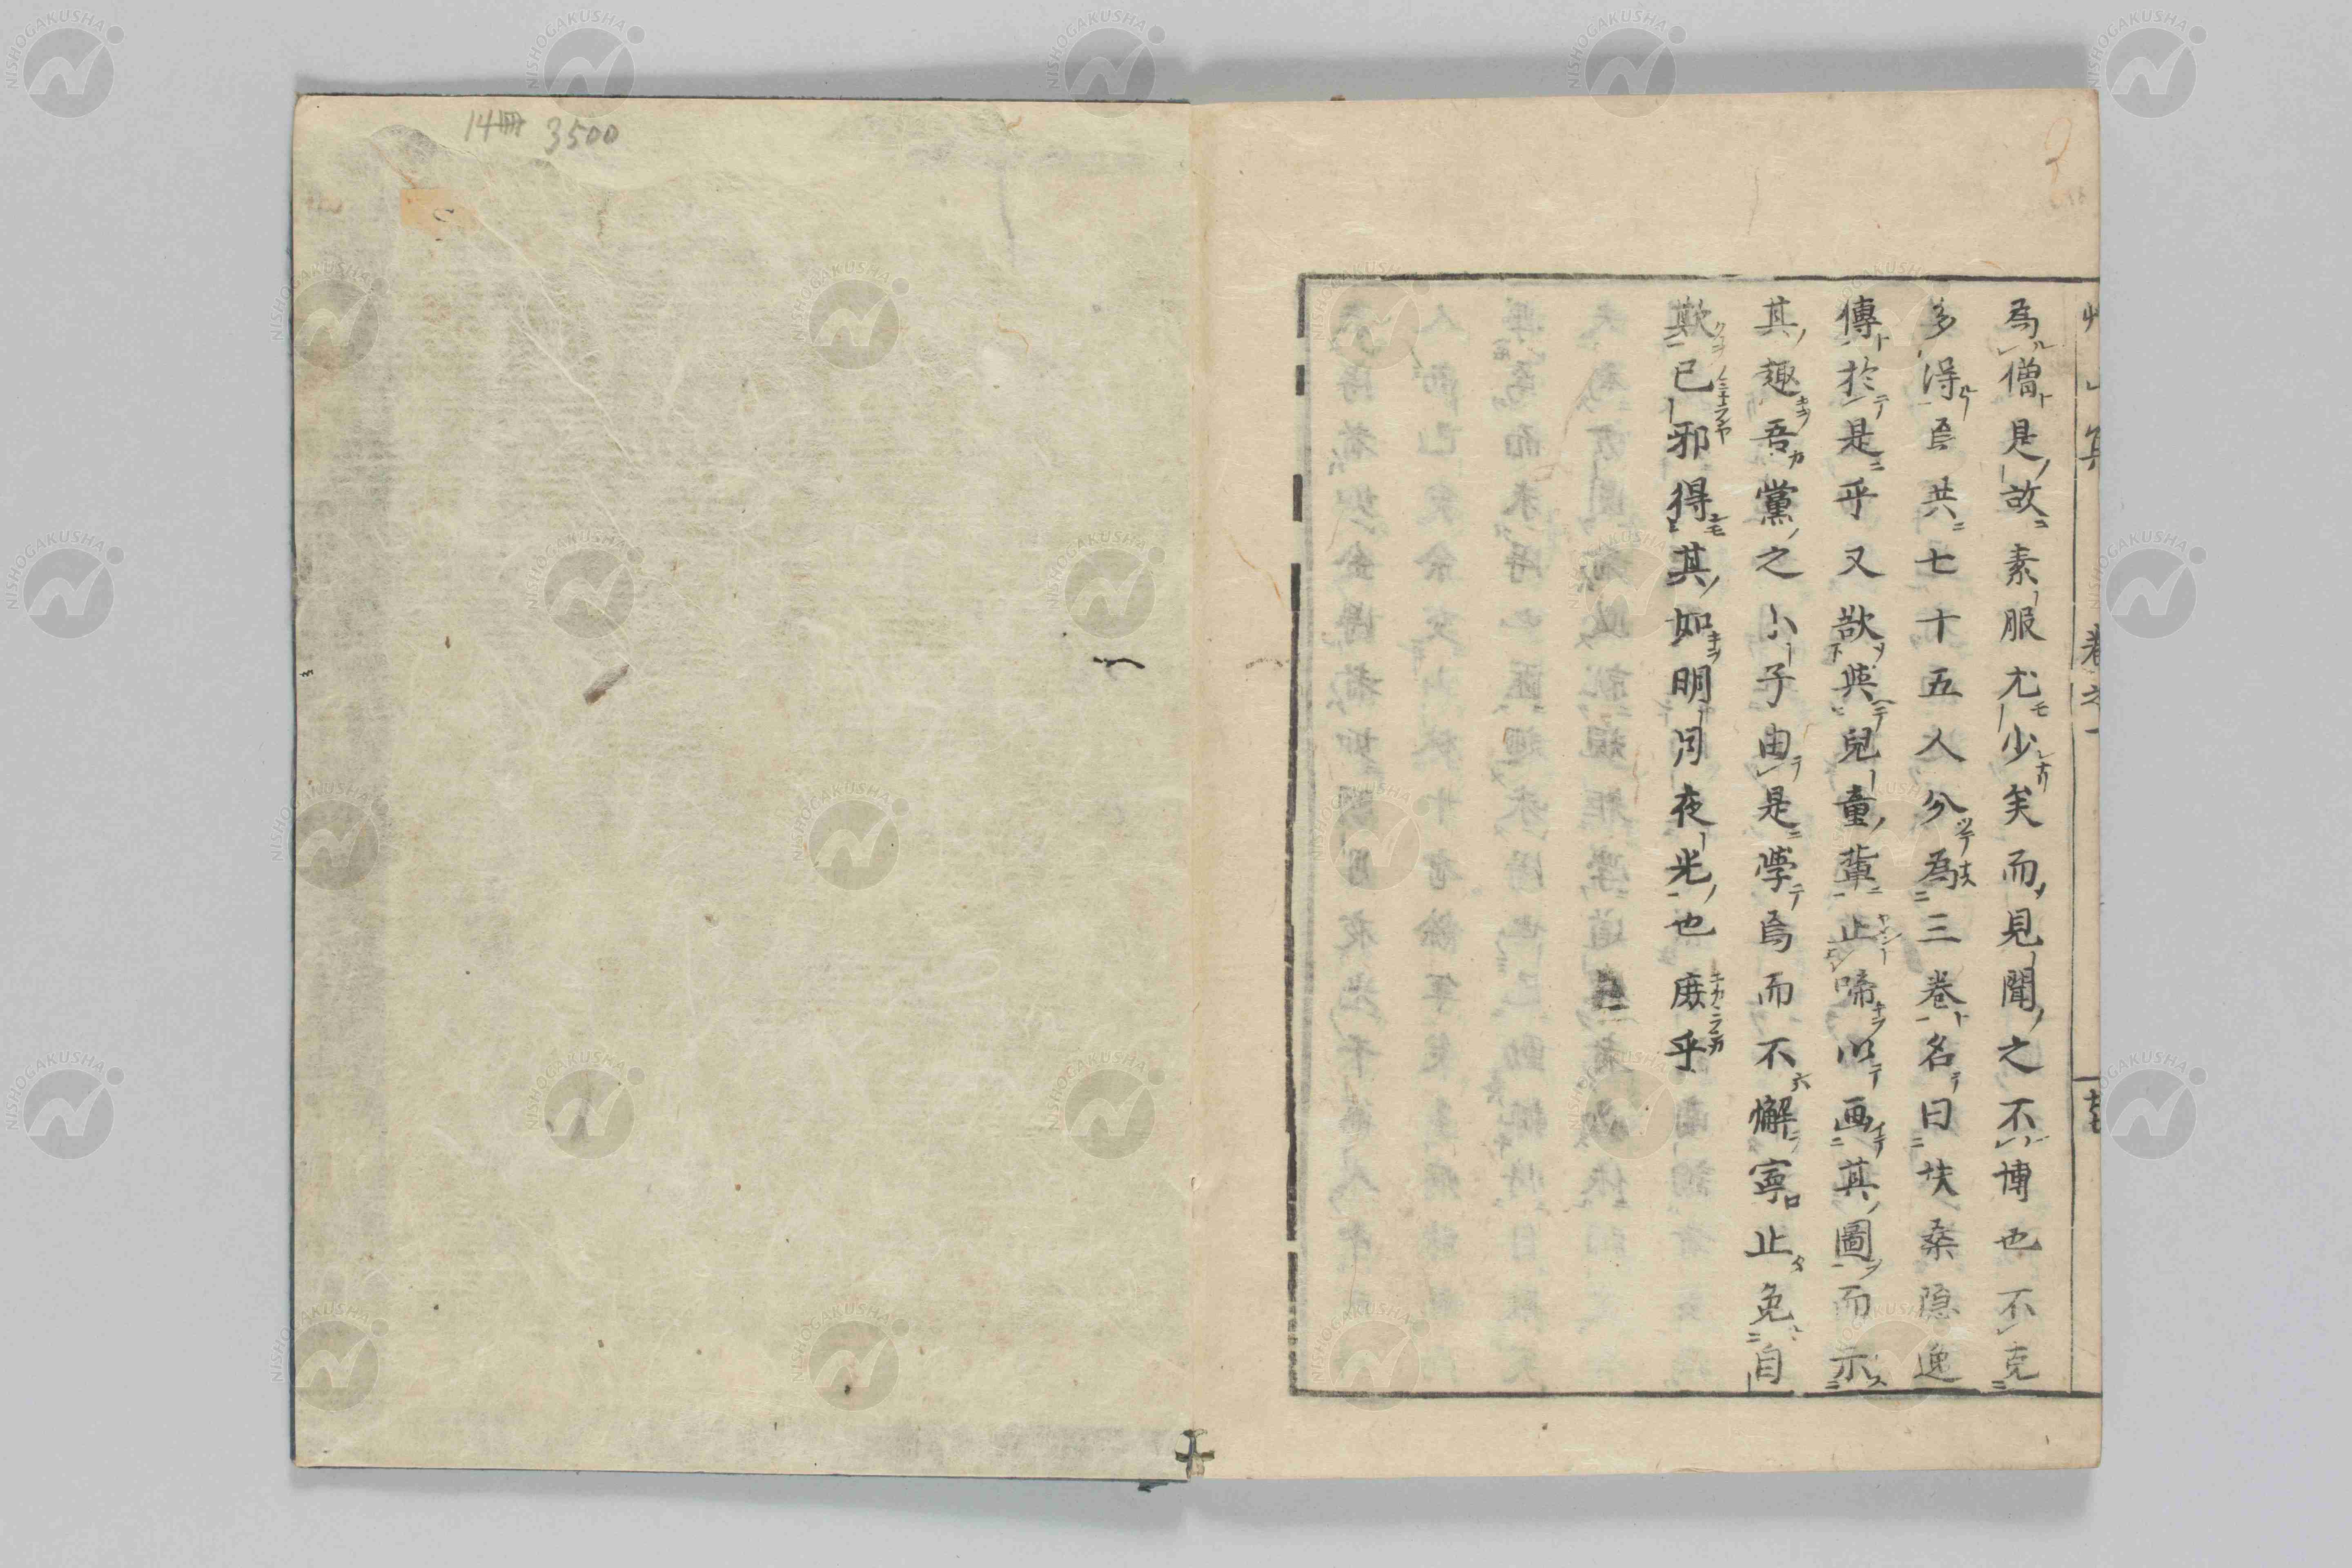 為僧是故素服尤少矣而見聞之不博也不克
多得焉共七十五人分為三巻名曰扶桑隠逸
傳於是乎又欲與兒童輩止啼以画其圖而示
其趣吾黨之小子由是學焉而不懈寧止免自
欺已邪得其如明月夜光也庶乎
巻之一
14冊 3500
NISHOGAKUSHA